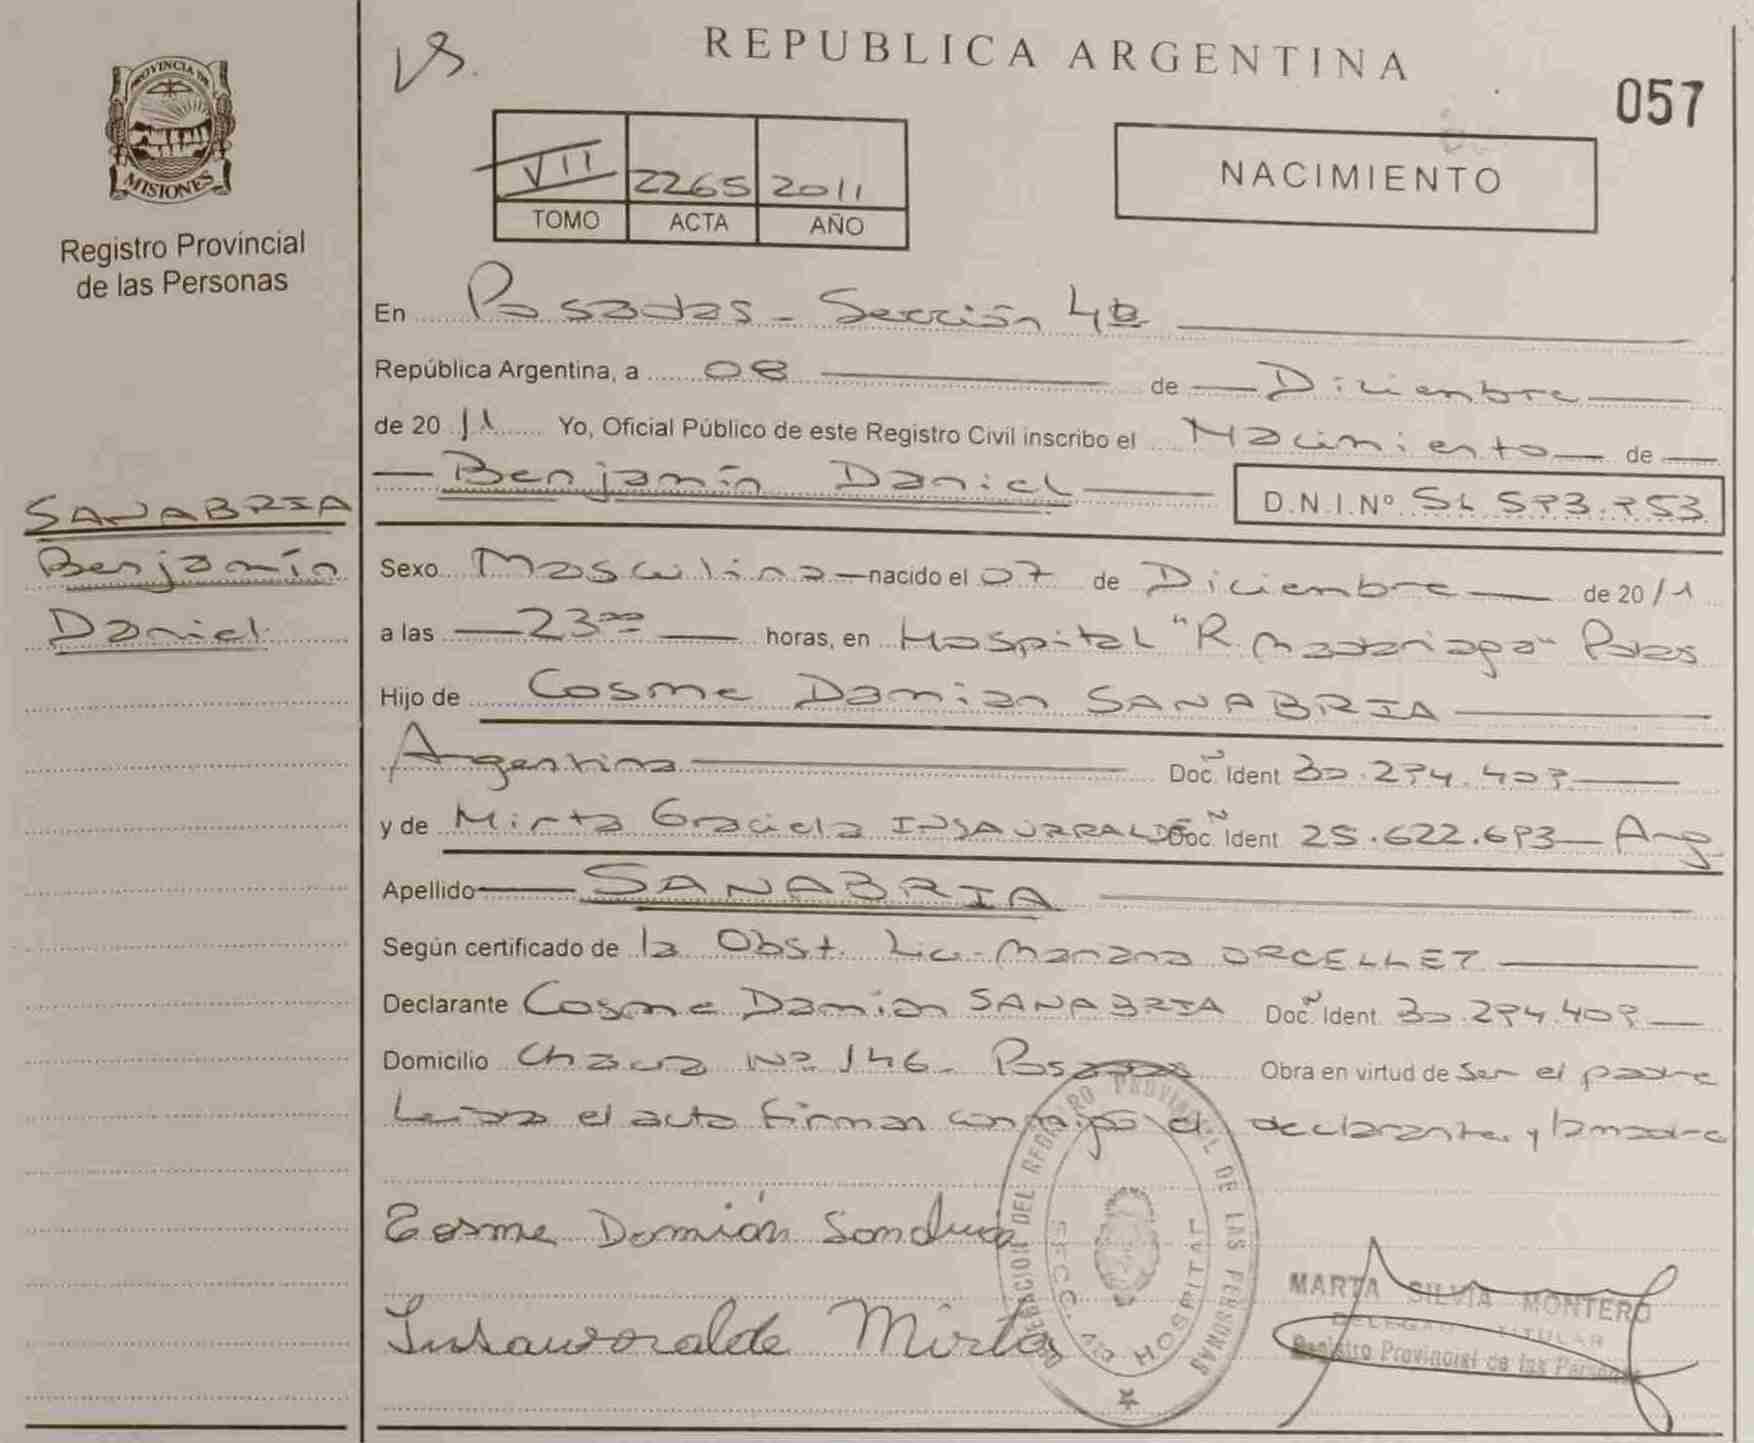 PROVINCIA DE
MISIONES
Registro Provincial
de las Personas
SANABRIA
Benjamín
Daniel
REPUBLICA ARGENTINA
057
VII 2265 2011
TOMO ACTA AÑO
NACIMIENTO
En Posadas - Sección 4ta
República Argentina, a 08 de Diciembre
de 2011 Yo, Oficial Público de este Registro Civil inscribo el Nacimiento de
Benjamín Daniel D.N.I.Nº
Sexo Masculino nacido el 07 de Diciembre de 2011
a las 23 00 horas, en Hospital "R. Madariaga" Pdas
Hijo de Cosme Damian SANABRIA
Argentino Doc. Ident 30.294.409
y de Mirta Graciela INSAURRALDE Doc. Ident 25.622.693 Arg
Apellido SANABRIA
Según certificado de la Obst. Lic. Mariana ORCELLET
Declarante Cosme Damian SANABRIA Doc. Ident. 30.294.409
Domicilio Chacra Nº 146 - Posadas Obra en virtud de ser el padre
Leida el acta firman conmigo el declarante y la madre
Cosme Damián Sanabria
Insaurralde Mirta
DELEGACION DEL REGISTRO PROVINCIAL DE LAS PERSONAS
SECC. 4ta HOSPITAL
MARTA SILVIA MONTERO
DELEGADA TITULAR
Registro Provincial de las Personas